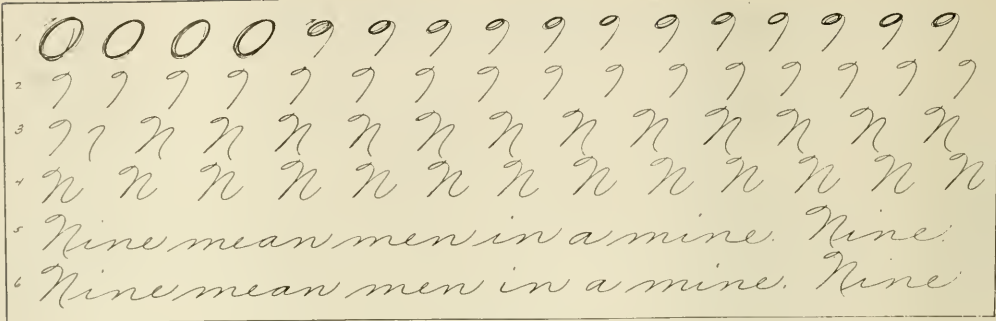 1 O O O O 9 9 9 9 9 9 9 9 9 9 9 9
2 9 9 9 9 9 9 9 9 9 9 9 9 9 9 9 9
3 9 1 N N N N N N N N N N N N
4 N N N N N N N N N N N N N
5 Nine mean men in a mine. Nine.
6 Nine mean men in a mine. Nine